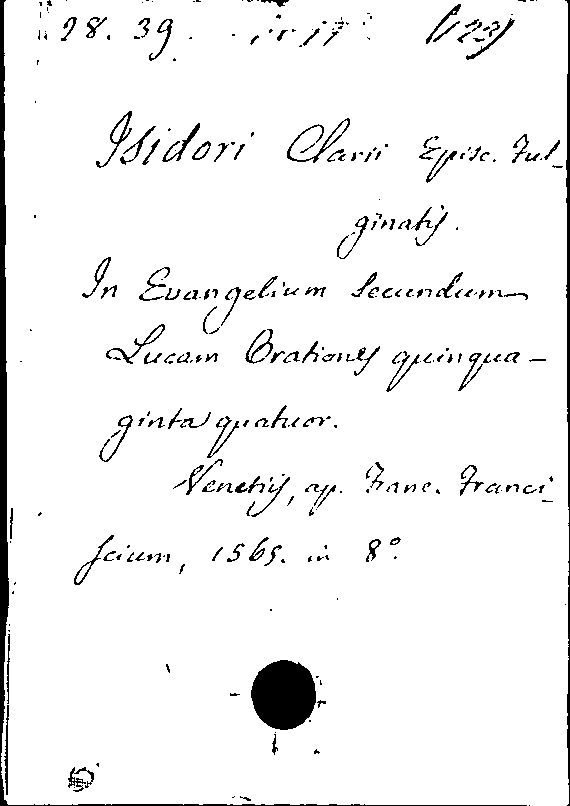 28. 39. (123)
Isidori Clarii Episc. Ful-
ginatis.
In Evangelium secundum
Lucam Orationes quinqua-
ginta quatuor.
Venetijs, ap. Franc. Franci-
scium, 1565. in 8°.